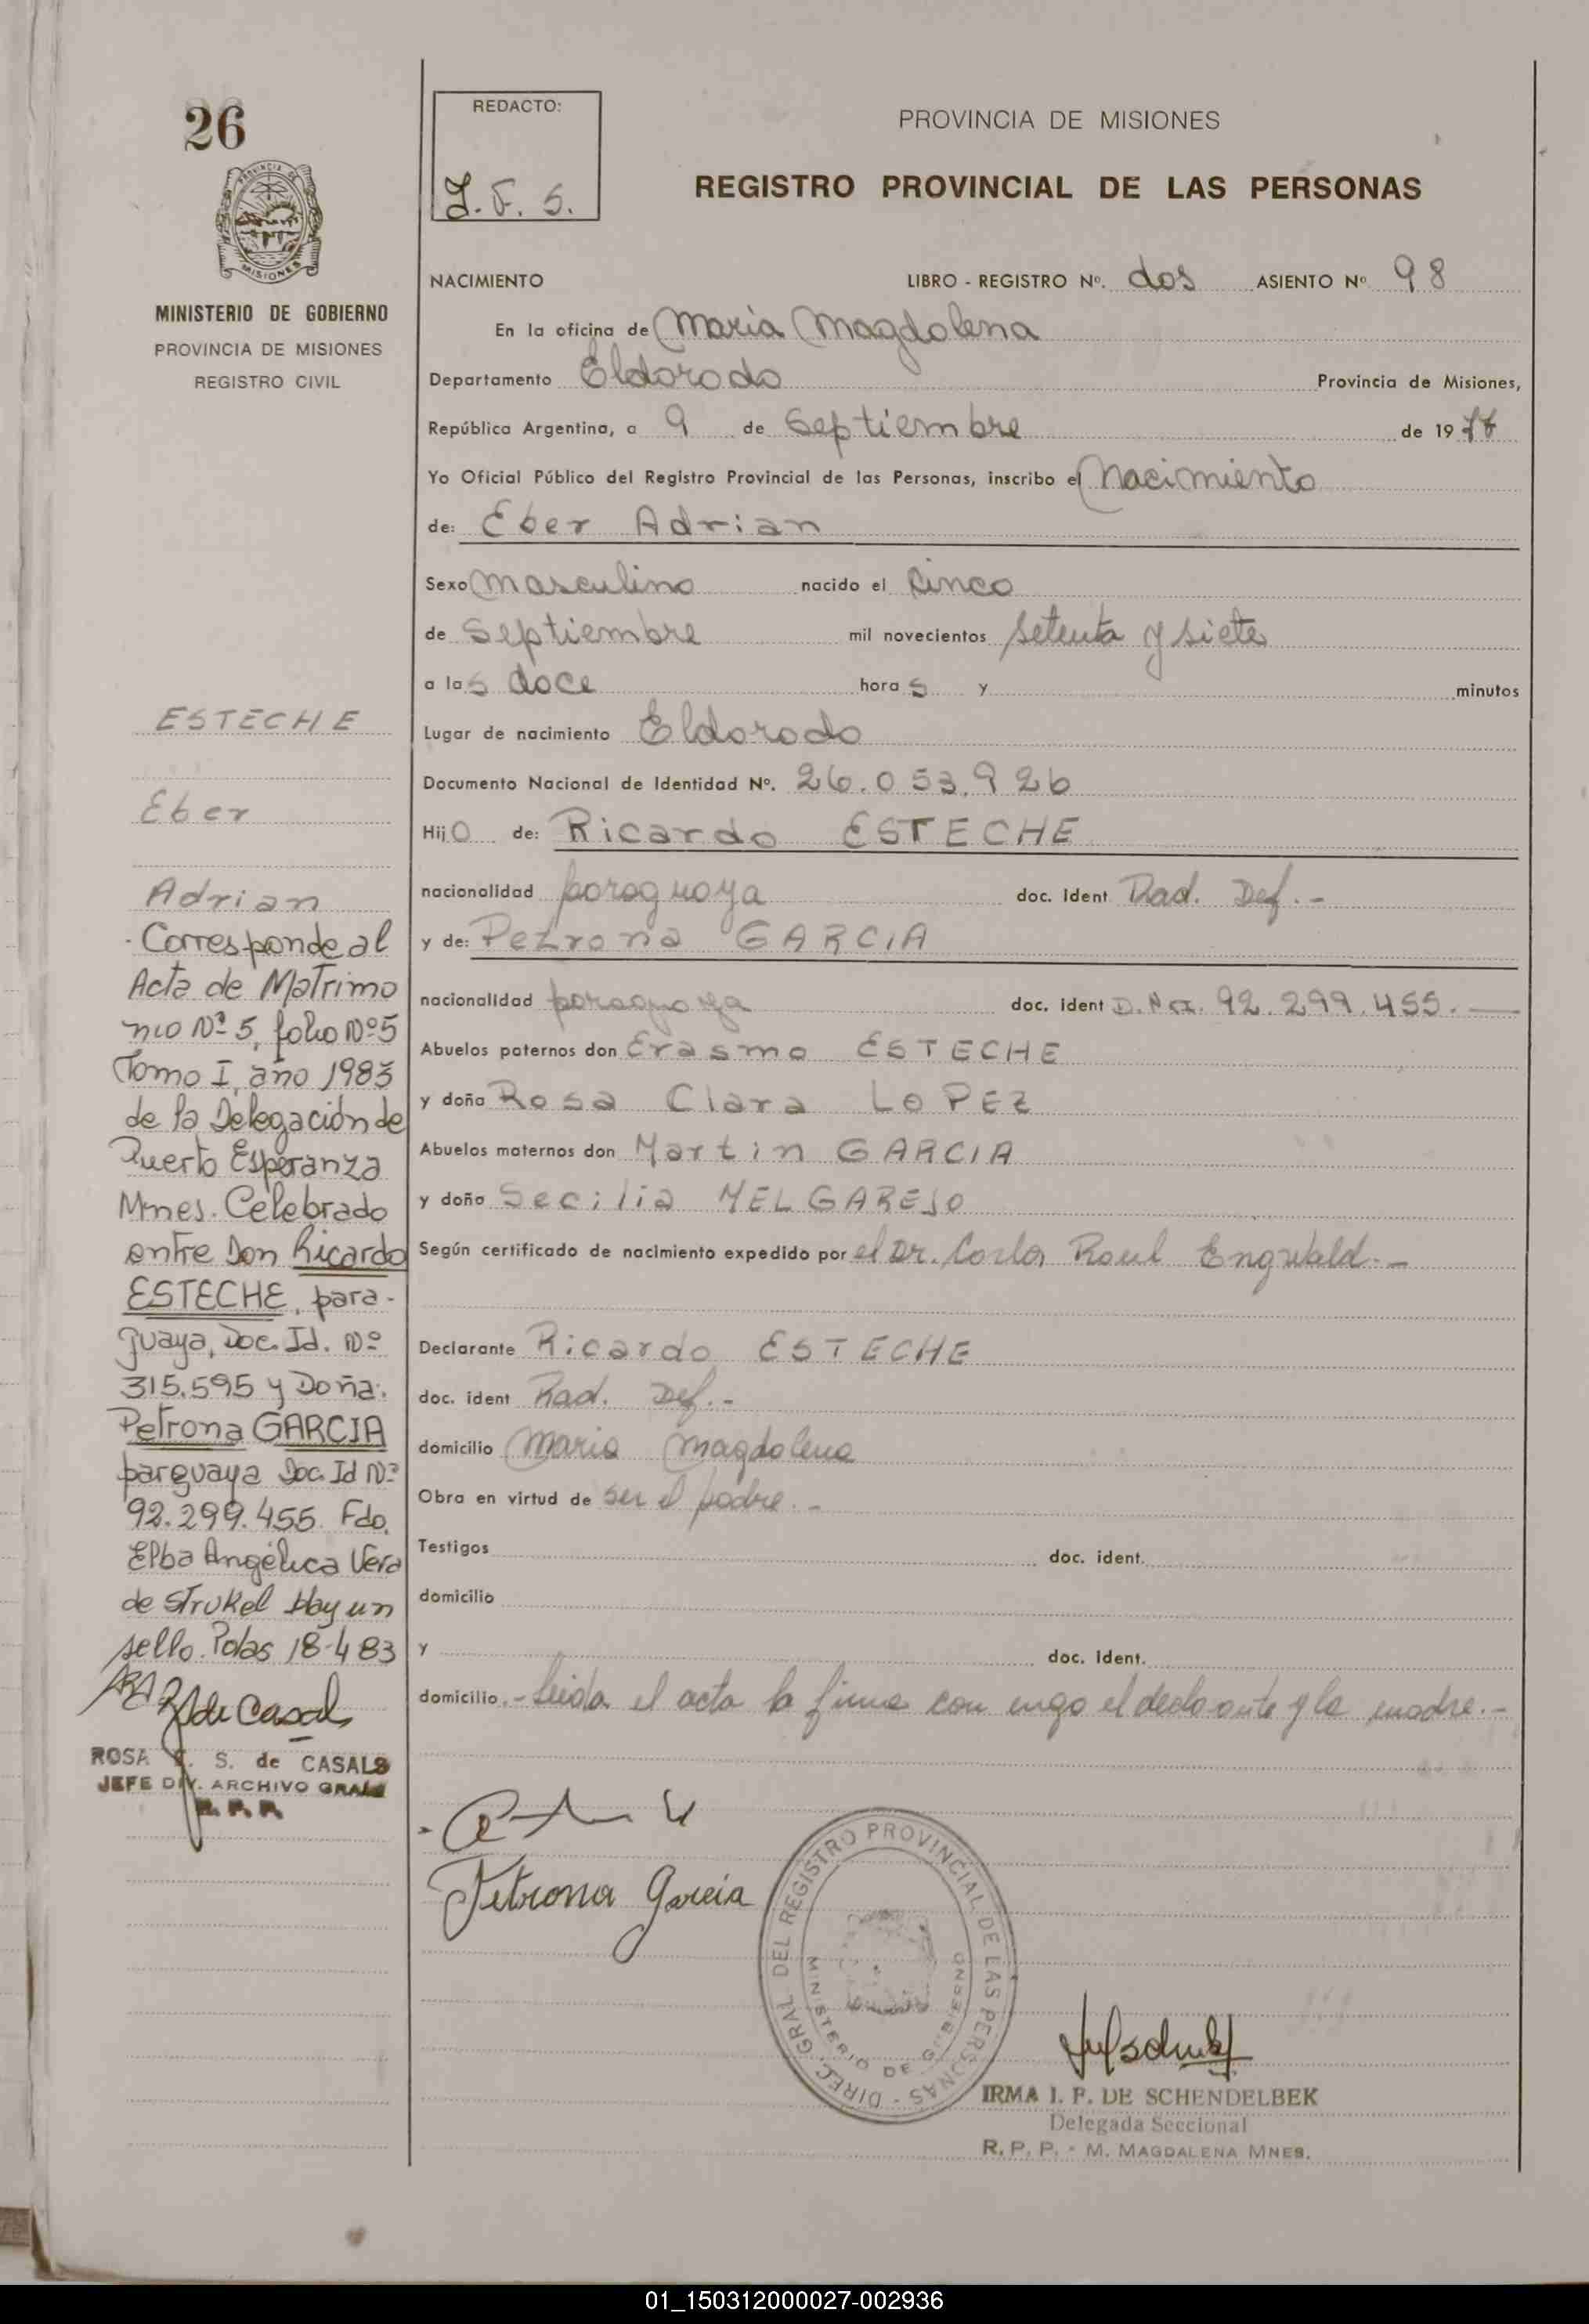 26
PROVINCIA DE
MISIONES
MINISTERIO DE GOBIERNO
PROVINCIA DE MISIONES
REGISTRO CIVIL
ESTECHE
Eber
Adrian
- Corresponde al
Acta de Matrimo
nio Nº 5, folio Nº 5
Tomo I, año 1983
de la Delegación de
Puerto Esperanza
Mnes. Celebrado
entre Don Ricardo
ESTECHE, para-
guaya, Doc. Id. Nº
315.595 y Doña:
Petrona GARCIA
parguaya Doc. Id Nº
92.299.455. Fdo.
Elba Angélica Vera
de Strukel Hay un
sello. Pdas 18-4 83
de Casals
ROSA S. de CASALS
JEFE DIV. ARCHIVO GRAL
R. P. P.
REDACTO:
J. F. S.
PROVINCIA DE MISIONES
REGISTRO PROVINCIAL DE LAS PERSONAS
NACIMIENTO LIBRO - REGISTRO Nº. dos ASIENTO Nº 98
En la oficina de Maria Magdalena
Departamento Eldorado Provincia de Misiones,
República Argentina, a 9 de Septiembre de 1977
Yo Oficial Público del Registro Provincial de las Personas, inscribo el Nacimiento
de: Eber Adrian
Sexo masculino nacido el cinco
de Septiembre mil novecientos setenta y siete
a las doce horas y minutos
Lugar de nacimiento Eldorado
Documento Nacional de Identidad Nº. 26.053.926
Hijo de: Ricardo ESTECHE
nacionalidad paraguaya doc. ident Rad. Def.-
y de: Petrona GARCIA
nacionalidad paraguaya doc. ident D.N.I. 92.299.455.-
Abuelos paternos don Erasmo ESTECHE
y doña Rosa Clara LOPEZ
Abuelos maternos don Martin GARCIA
y doña Secilia MELGAREJO
Según certificado de nacimiento expedido por el Dr. Carlos Raul Engwald.-
Declarante Ricardo ESTECHE
doc. ident Rad. Def.-
domicilio Maria Magdalena
Obra en virtud de ser el padre.-
Testigos doc. ident.
domicilio
y doc. ident.
domicilio.- Leida el acta la firma con migo el declarante y la madre.-
Petrona Garcia
DIREC. GRAL. DEL REGISTRO PROVINCIAL DE LAS PERSONAS -
MINISTERIO DE GOBIERNO
IRMA I. F. DE SCHENDELBEK
Delegada Seccional
R. P. P. - M. MAGDALENA MNES.
01_150312000027-002936